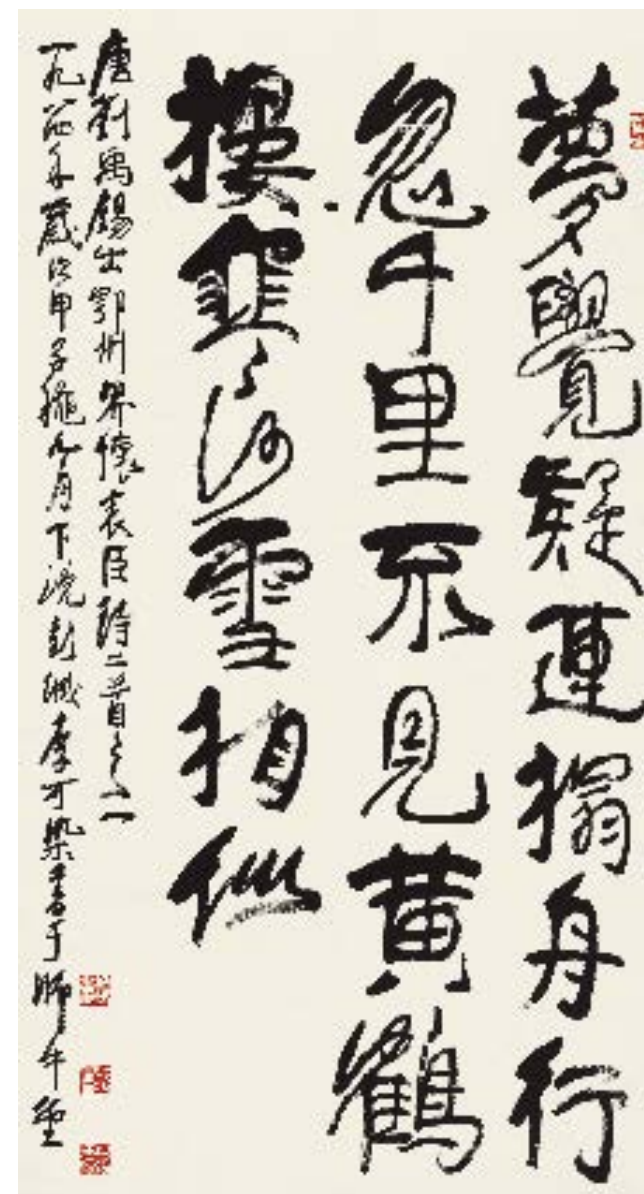 夢覺疑連榻舟行
忽千里不見黃鶴
樓寒沙雪相似
唐劉禹錫出鄂州界懷表臣詩二首之二
一九八四年歲次甲子穐九月下浣彭城李可染書于師牛堂